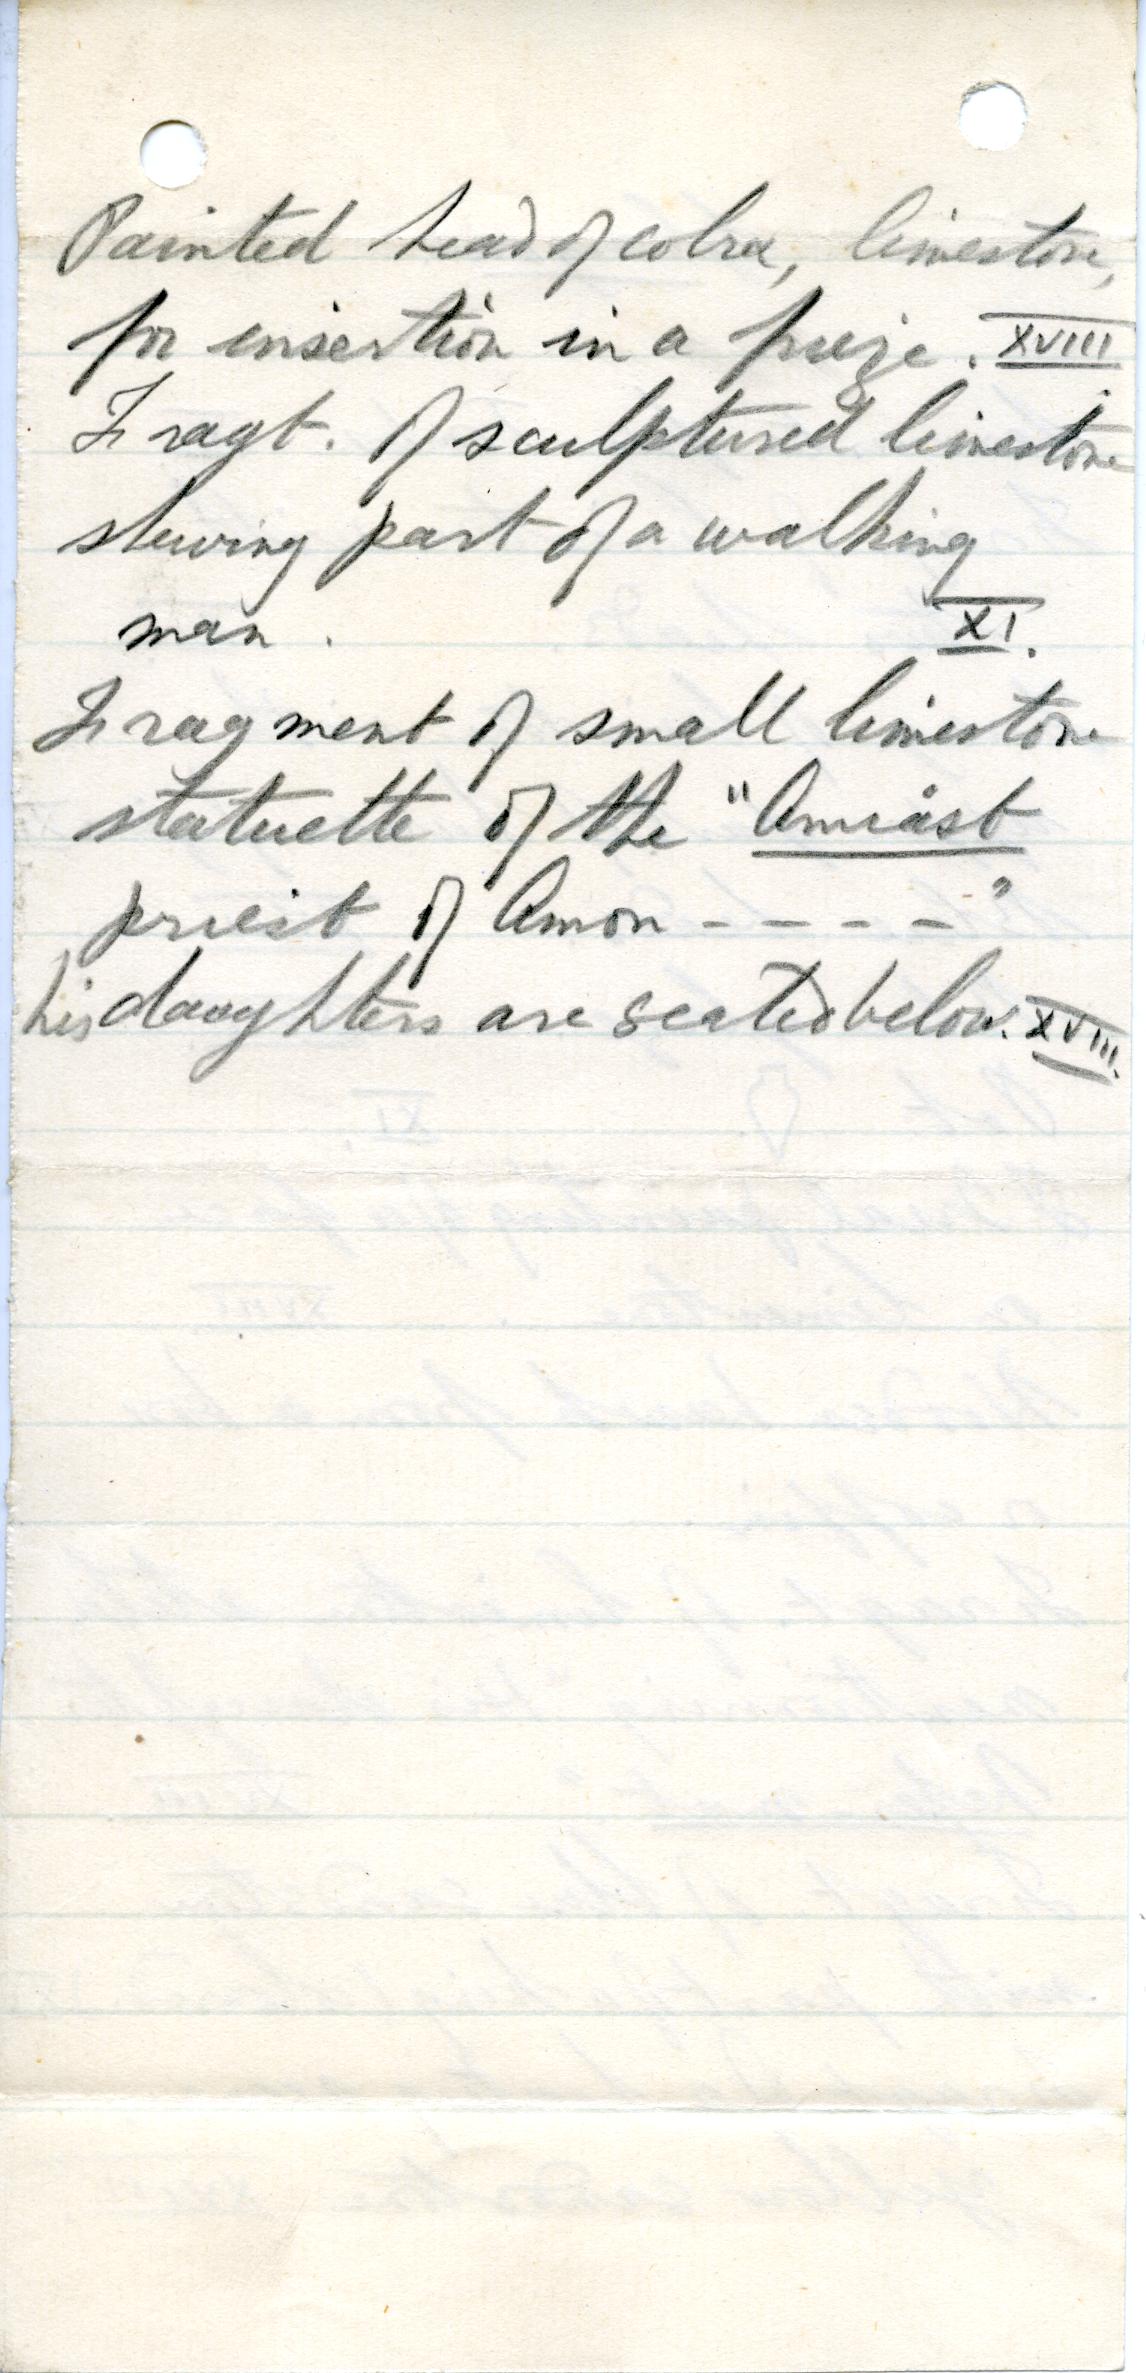 Painted head of cobra, limestone,
for insertion in a frieze. XVIII
Fragt. of sculptured limestone
shewing part of a walking
man. XI.
Fragment of small limestone
statuette of the "Amiást
priest of Amon - - - - "
his daughters are seated below. XVIII.